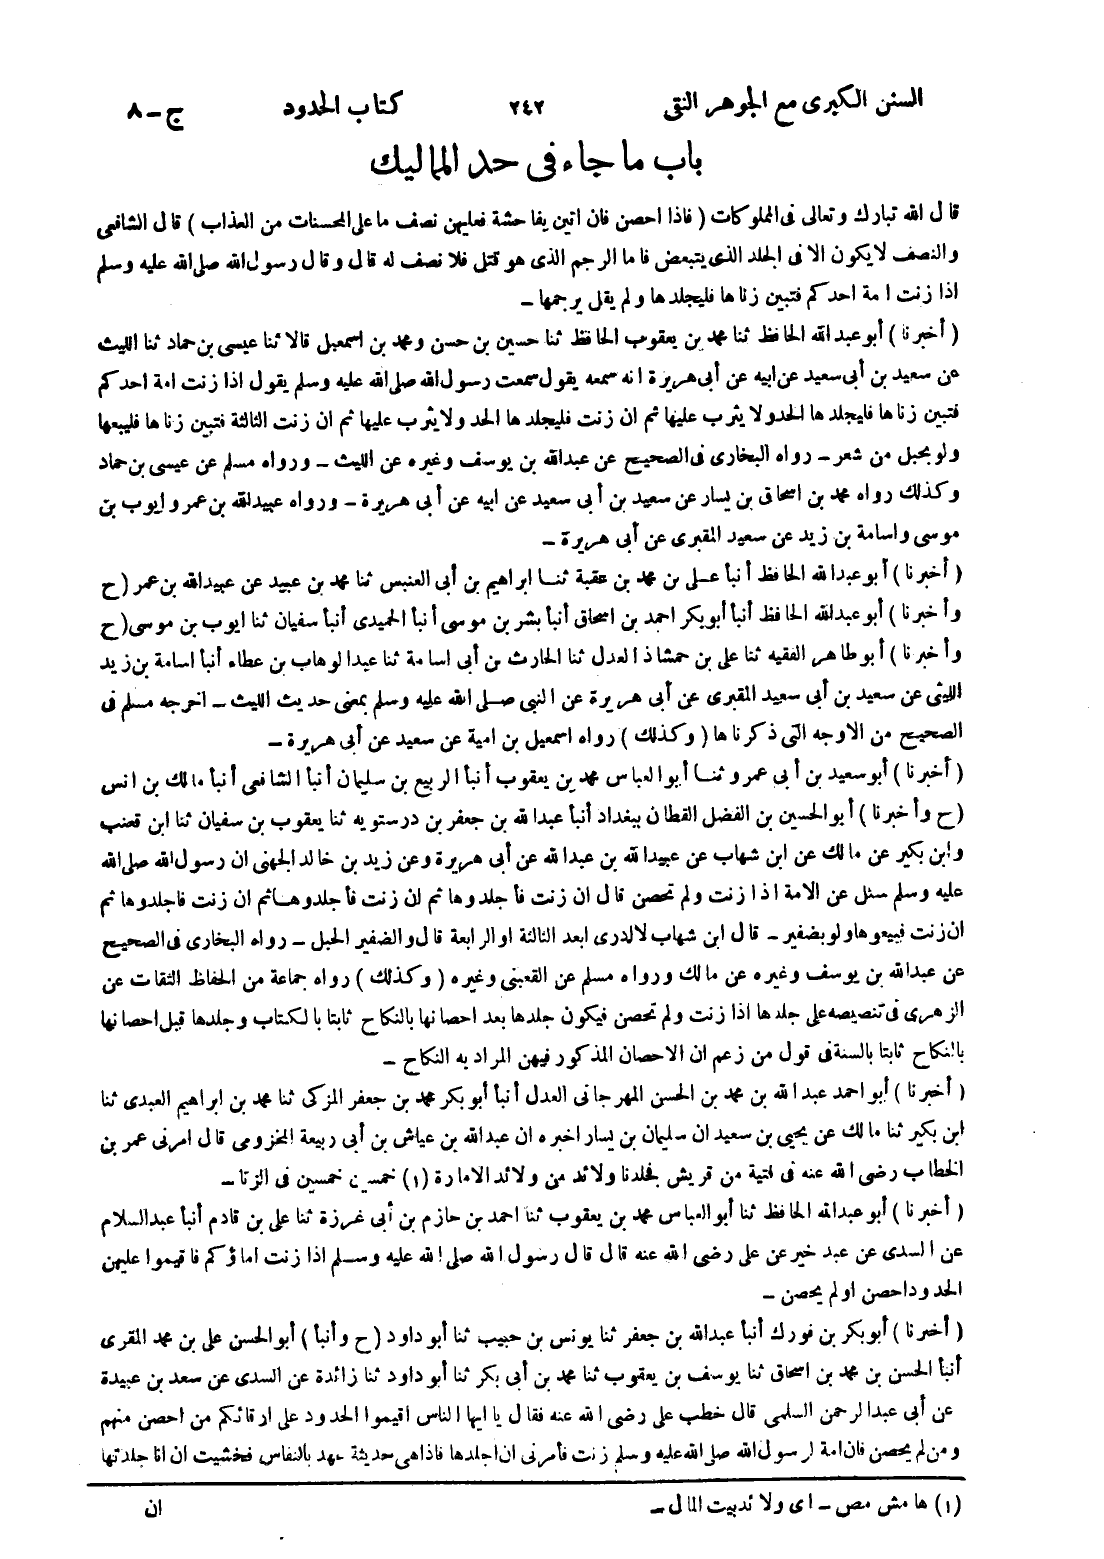 السنن الكبرى مع الجوهر النقى ٢٤٢ كتاب الحدود ج - ٨
باب ما جاء فى حد المماليك
قال الله تبارك وتعالى فى المملوكات ( فاذا احصن فان اتين بفاحشة فعليهن نصف ما على المحصنات من العذاب ) قال الشافعى
والنصف لا يكون الا فى الجلد الذى يتبعض فاما الرجم الذى هو قتل فلا نصف له قال وقال رسول الله صلى الله عليه وسلم
اذا زنت امة احدكم فتبين زناها فليجلدها ولم يقل يرجمها -
( أخبرنا ) أبو عبد الله الحافظ ثنا محمد بن يعقوب الحافظ ثنا حسين بن حسن ومحمد بن اسمعيل قالا ثنا عيسى بن حماد ثنا الليث
عن سعيد بن أبى سعيد عن ابيه عن أبى هريرة انه سمعه يقول سمعت رسول الله صلى الله عليه وسلم يقول اذا زنت امة احدكم
فتبين زناها فليجلدها الحد ولا يثرب عليها ثم ان زنت فليجلدها الحد ولا يثرب عليها ثم ان زنت الثالثة فتبين زناها فليبعها
ولو بحبل من شعر - رواه البخارى فى الصحيح عن عبد الله بن يوسف وغيره عن الليث - ورواه مسلم عن عيسى بن حماد
وكذلك رواه محمد بن اسحاق بن يسار عن سعيد بن أبى سعيد عن ابيه عن أبى هريرة - ورواه عبيد الله بن عمر وايوب بن
موسى واسامة بن زيد عن سعيد المقبرى عن أبى هريرة -
( أخبرنا ) أبو عبد الله الحافظ أنبأ على بن محمد بن عقبة ثنا ابراهيم بن أبى العنبس ثنا محمد بن عبيد عن عبيد الله بن عمر ( ح
وأخبرنا ) أبو عبد الله الحافظ أنبأ أبو بكر احمد بن اسحاق أنبأ بشر بن موسى أنبأ الحميدى أنبأ سفيان ثنا ايوب بن موسى ( ح
وأخبرنا ) أبو طاهر الفقيه ثنا على بن حمشاذ العدل ثنا الحارث بن أبى اسامة ثنا عبد الوهاب بن عطاء أنبأ اسامة بن زيد
الليثى عن سعيد بن أبى سعيد المقبرى عن أبى هريرة عن النبى صلى الله عليه وسلم بمعنى حديث الليث - اخرجه مسلم فى
الصحيح من الاوجه التى ذكرناها ( وكذلك ) رواه اسمعيل بن امية عن سعيد عن أبى هريرة -
( أخبرنا ) أبو سعيد بن أبى عمرو ثنا أبو العباس محمد بن يعقوب أنبأ الربيع بن سليمان أنبأ الشافعى أنبأ مالك بن انس
( ح وأخبرنا ) أبو الحسين بن الفضل القطان ببغداد أنبأ عبد الله بن جعفر بن درستويه ثنا يعقوب بن سفيان ثنا ابن قعنب
وابن بكير عن مالك عن ابن شهاب عن عبيد الله بن عبد الله عن أبى هريرة وعن زيد بن خالد الجهنى ان رسول الله صلى الله
عليه وسلم سئل عن الامة اذا زنت ولم تحصن قال ان زنت فاجلدوها ثم ان زنت فاجلدوها ثم ان زنت فاجلدوها ثم
ان زنت فبيعوها ولو بضفير - قال ابن شهاب لا ادرى ابعد الثالثة او الرابعة قال والضفير الحبل - رواه البخارى فى الصحيح
عن عبد الله بن يوسف وغيره عن مالك ورواه مسلم عن القعنبى وغيره ( وكذلك ) رواه جماعة من الحفاظ الثقات عن
الزهرى فى تنصيصه على جلدها اذا زنت ولم تحصن فيكون جلدها بعد احصانها بالنكاح ثابتا بالكتاب وجلدها قبل احصانها
بالنكاح ثابتا بالسنة فى قول من زعم ان الاحصان المذكور فيهن المراد به النكاح -
( أخبرنا ) أبو احمد عبد الله بن محمد بن الحسن المهرجانى العدل أنبأ أبو بكر محمد بن جعفر المزكى ثنا محمد بن ابراهيم العبدى ثنا
ابن بكير ثنا مالك عن يحيى بن سعيد ان سليمان بن يسار اخبره ان عبد الله بن عياش بن أبى ربيعة المخزومى قال امرنى عمر بن
الخطاب رضى الله عنه فى فتية من قريش فجلدنا ولائد من ولائد الامارة (١) خمسين خمسين فى الزنا -
( أخبرنا ) أبو عبد الله الحافظ ثنا أبو العباس محمد بن يعقوب ثنا احمد بن حازم بن أبى غرزة ثنا على بن قادم أنبأ عبد السلام
عن السدى عن عبد خير عن على رضى الله عنه قال قال رسول الله صلى الله عليه وسلم اذا زنت اماؤكم فاقيموا عليهن
الحدود احصن او لم يحصن -
( أخبرنا ) أبو بكر بن فورك أنبأ عبد الله بن جعفر ثنا يونس بن حبيب ثنا أبو داود ( ح وأنبأ ) أبو الحسن على بن محمد المقرى
أنبأ الحسن بن محمد بن اسحاق ثنا يوسف بن يعقوب ثنا محمد بن أبى بكر ثنا أبو داود ثنا زائدة عن السدى عن سعد بن عبيدة
عن أبى عبد الرحمن السلمى قال خطب على رضى الله عنه فقال يا ايها الناس اقيموا الحدود على ارقائكم من احصن منهم
ومن لم يحصن فان امة لرسول الله صلى الله عليه وسلم زنت فأمرنى ان اجلدها فاذا هى حديثة عهد بالنفاس فخشيت ان انا جلدتها
(١) هامش مص - اى ولائد بيت المال -
ان